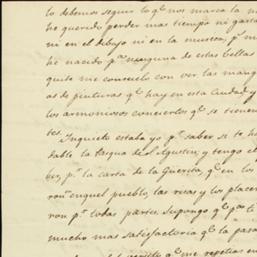 lo debemos seguir lo qᵉ nos marca la
he querido perder mas tiempo ni
ni en el dibujo ni en la musica, pˢ
he nacido pᵃ ninguna de estas bellas
quite me consuelo con ver las
de pinturas qᵉ hay en esta Ciudad y
los armoniosos conciertos qᵉ se tienen
tes.
Inquieto estaba yo pʳ saber si te
dable la Pasqua de Sⁿ Agustin, y tengo el
pʳ la carta de la Guerita, qᵉ en los
ron en quel pueblo, las risas y los placer
ron pʳ todas partes. Supongo qᵉ pᵃ ti
mucho mas satisfactoria qᵉ la pasa
qᵉ me repetias en